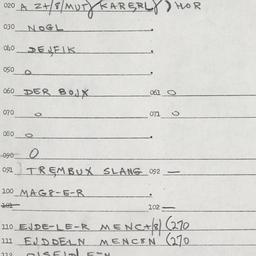 020 A 2+/8/MUT) KARERL) ) HOR
030 NOGL
040 DEJFIK
050 0
060 DER BOJX 061 0
070 0 071 0
080 0
090 0
091 TREMBUX SLANG 092 —
100 MAG8-E-R
101 102 —
110 EJDE-LE-R MENC+/8/ (270
111 EJDDELN MENCEN (270